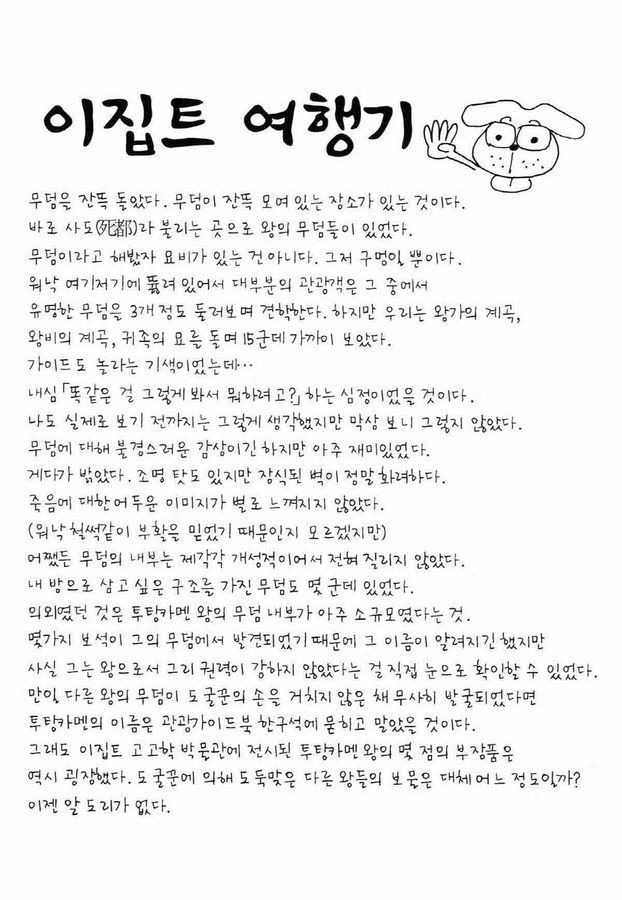 이집트 여행기
무덤을 잔뜩 돌았다. 무덤이 잔뜩 모여 있는 장소가 있는 것이다.
바로 사도(死都)라 불리는 곳으로 왕의 무덤들이 있었다.
무덤이라고 해봤자 묘비가 있는 건 아니다. 그저 구멍일 뿐이다.
워낙 여기저기에 뚫려 있어서 대부분의 관광객은 그 중에서
유명한 무덤을 3개 정도 둘러보며 견학한다. 하지만 우리는 왕가의 계곡,
왕비의 계곡, 귀족의 묘를 돌며 15군데 가까이 보았다.
가이드도 놀라는 기색이었는데…
내심 「똑같은 걸 그렇게 봐서 뭐하려고?」 하는 심정이었을 것이다.
나도 실제로 보기 전까지는 그렇게 생각했지만 막상 보니 그렇지 않았다.
무덤에 대해 불경스러운 감상이긴 하지만 아주 재미있었다.
게다가 밝았다. 조명 탓도 있지만 장식된 벽이 정말 화려하다.
죽음에 대한 어두운 이미지가 별로 느껴지지 않았다.
(워낙 철썩같이 부활을 믿었기 때문인지 모르겠지만)
어쨌든 무덤의 내부는 제각각 개성적이어서 전혀 질리지 않았다.
내 방으로 삼고 싶은 구조를 가진 무덤도 몇 군데 있었다.
의외였던 것은 투탕카멘 왕의 무덤 내부가 아주 소규모였다는 것.
몇가지 보석이 그의 무덤에서 발견되었기 때문에 그 이름이 알려지긴 했지만
사실 그는 왕으로서 그리 권력이 강하지 않았다는 걸 직접 눈으로 확인할 수 있었다.
만일 다른 왕의 무덤이 도굴꾼의 손을 거치지 않은 채 무사히 발굴되었다면
투탕카멘의 이름은 관광가이드북 한구석에 묻히고 말았을 것이다.
그래도 이집트 고고학 박물관에 전시된 투탕카멘 왕의 몇 점의 부장품은
역시 굉장했다. 도굴꾼에 의해 도둑맞은 다른 왕들의 보물은 대체 어느 정도일까?
이젠 알 도리가 없다.